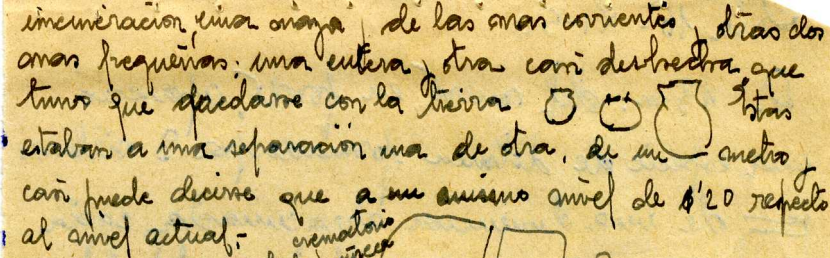 incineración, una maza, de las mas corrientes, otras dos
mas pequeñas; una entera, otra casi deshecha que
tuvo que quedarse con la tierra Estas
estaban a una separación una de otra, de un metro y
casi puede decirse que a un mismo nivel de 1'20 respecto
al nivel actual.-
crematorio